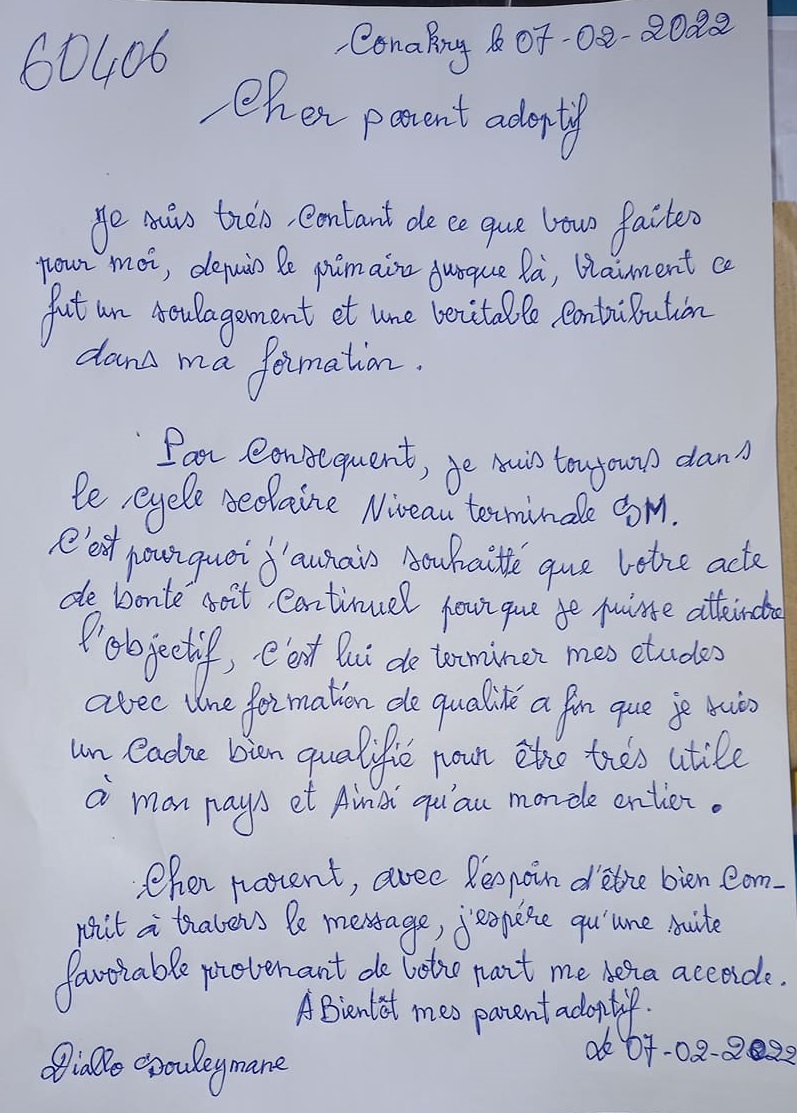 60406
Conakry le 07-02-2022
Cher parent adoptif
Je suis trés Contant de ce que vous faites
pour moi, depuis le primaire jusque là, Vraiment ce
fut un soulagement et une veritable Contribution
dans ma formation.
Par Consequent, je suis toujours dans
le cycle scolaire Niveau terminale SM.
C'est pourquoi j'aurais souhaitté que votre acte
de bonté soit Continuel pour que je puisse atteindre
l'objectif, c'est lui de terminer mes etudes
avec une formation de qualité a fin que je suis
un Cadre bien qualifié pour être trés utile
à mon pays et Ainsi qu'au monde entier.
Cher parent, avec l'éspoin d'être bien Com-
prit à travers le message, j'espére qu'une suite
favorable provenant de votre part me sera accorde.
À Bientôt mes parent adoptif.
le 07-02-2022
Diallo Souleymane